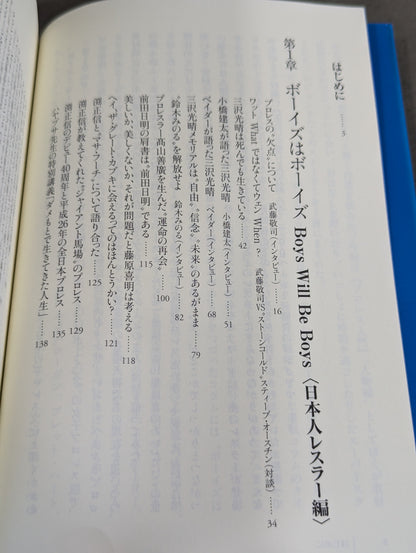 はじめに……3
第1章 ボーイズはボーイズ Boys Will Be Boys〈日本人レスラー編〉
プロレスの“欠点”について 武藤敬司（インタビュー）……16
ワット What ではなくてウェン When？ 武藤敬司VS“ストーンコールド”スティーブ・オースチン（対談）……34
三沢光晴は死んでも生きている……42
小橋建太が語った三沢光晴 小橋建太（インタビュー）……51
ベイダーが語った三沢光晴 ベイダー（インタビュー）……68
三沢光晴メモリアルは、“自由”“信念”“未来”のあるがまま……79
“鈴木みのる”を解放せよ 鈴木みのる（インタビュー）……82
プロレスラー髙山善廣を生んだ“運命の再会”……100
前田日明の肩書は“前田日明”である……115
美しいか、美しくないか、それが問題だと藤原喜明は考える……118
ヘイ、ザ・グレート・カブキに会えるってのはほんとうかい？……121
渕正信と“マサ・フーチ”について語り合った……125
渕正信が教えてくれた“ジャイアント馬場”のプロレス……129
渕正信のデビュー40周年と平成26年の全日本プロレス……135
ハヤブサ先生の特別講義「ダメもとで生きてきた人生」……138